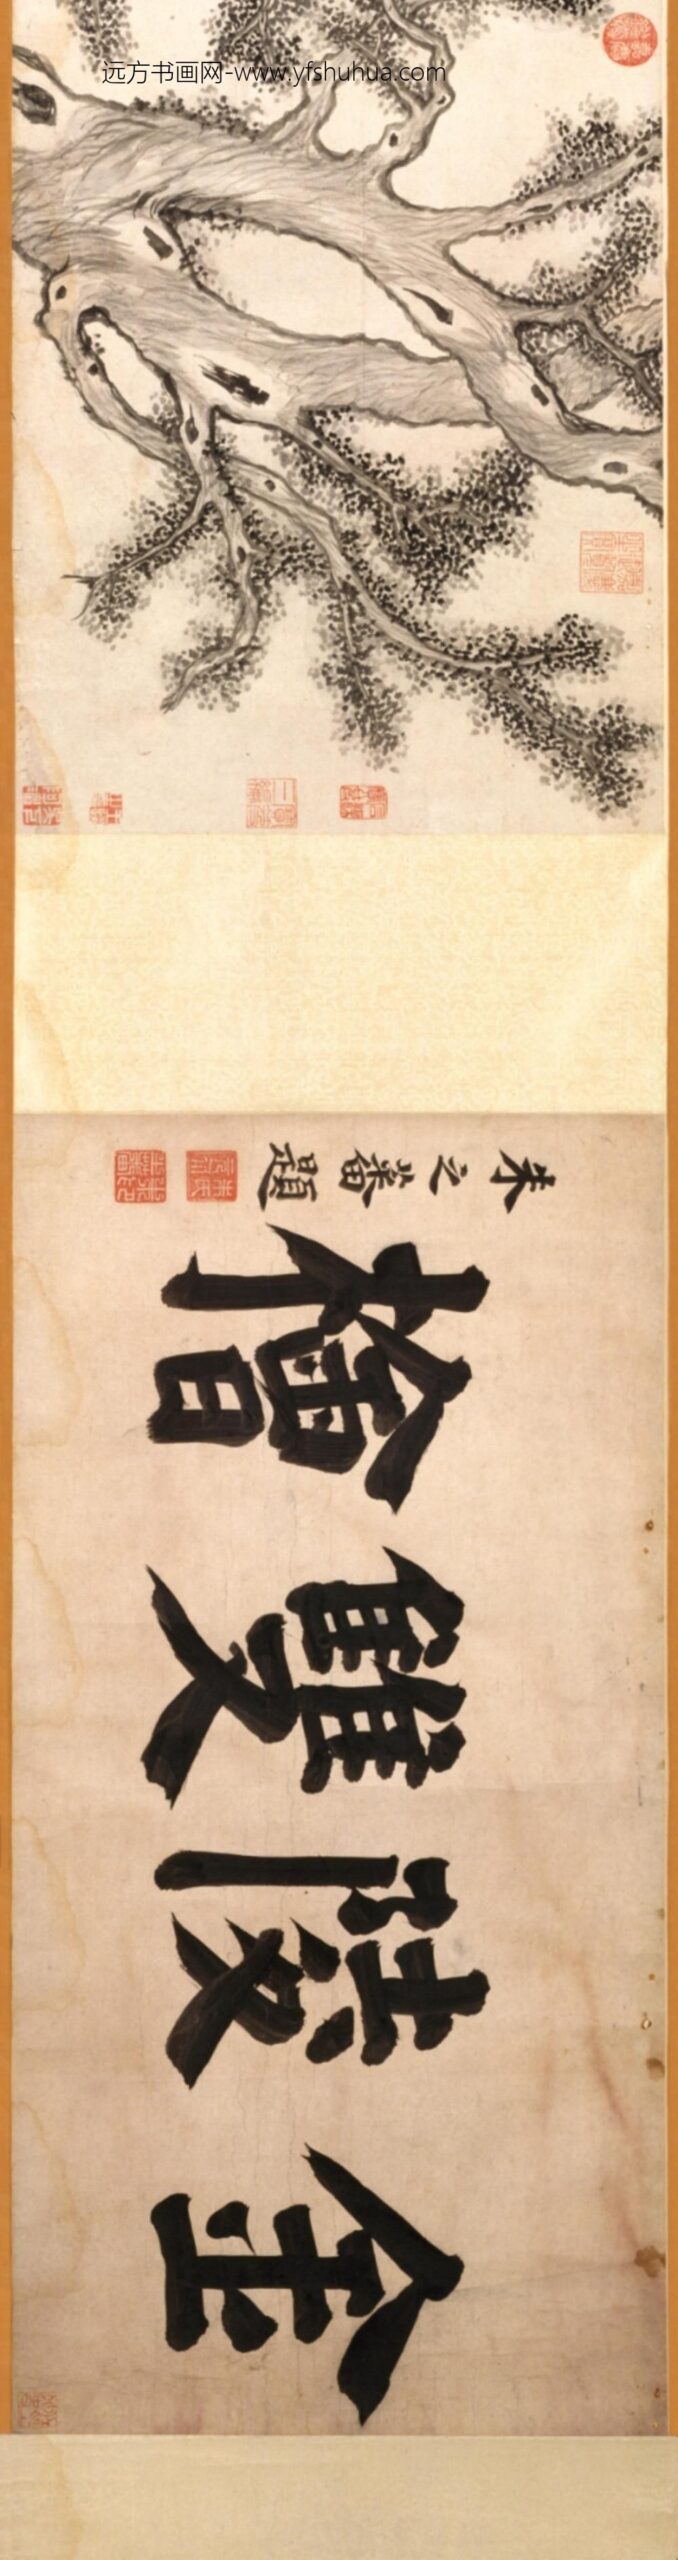 远方书画网-www.yfshuhua.com
金陵雙檜
朱之蕃題